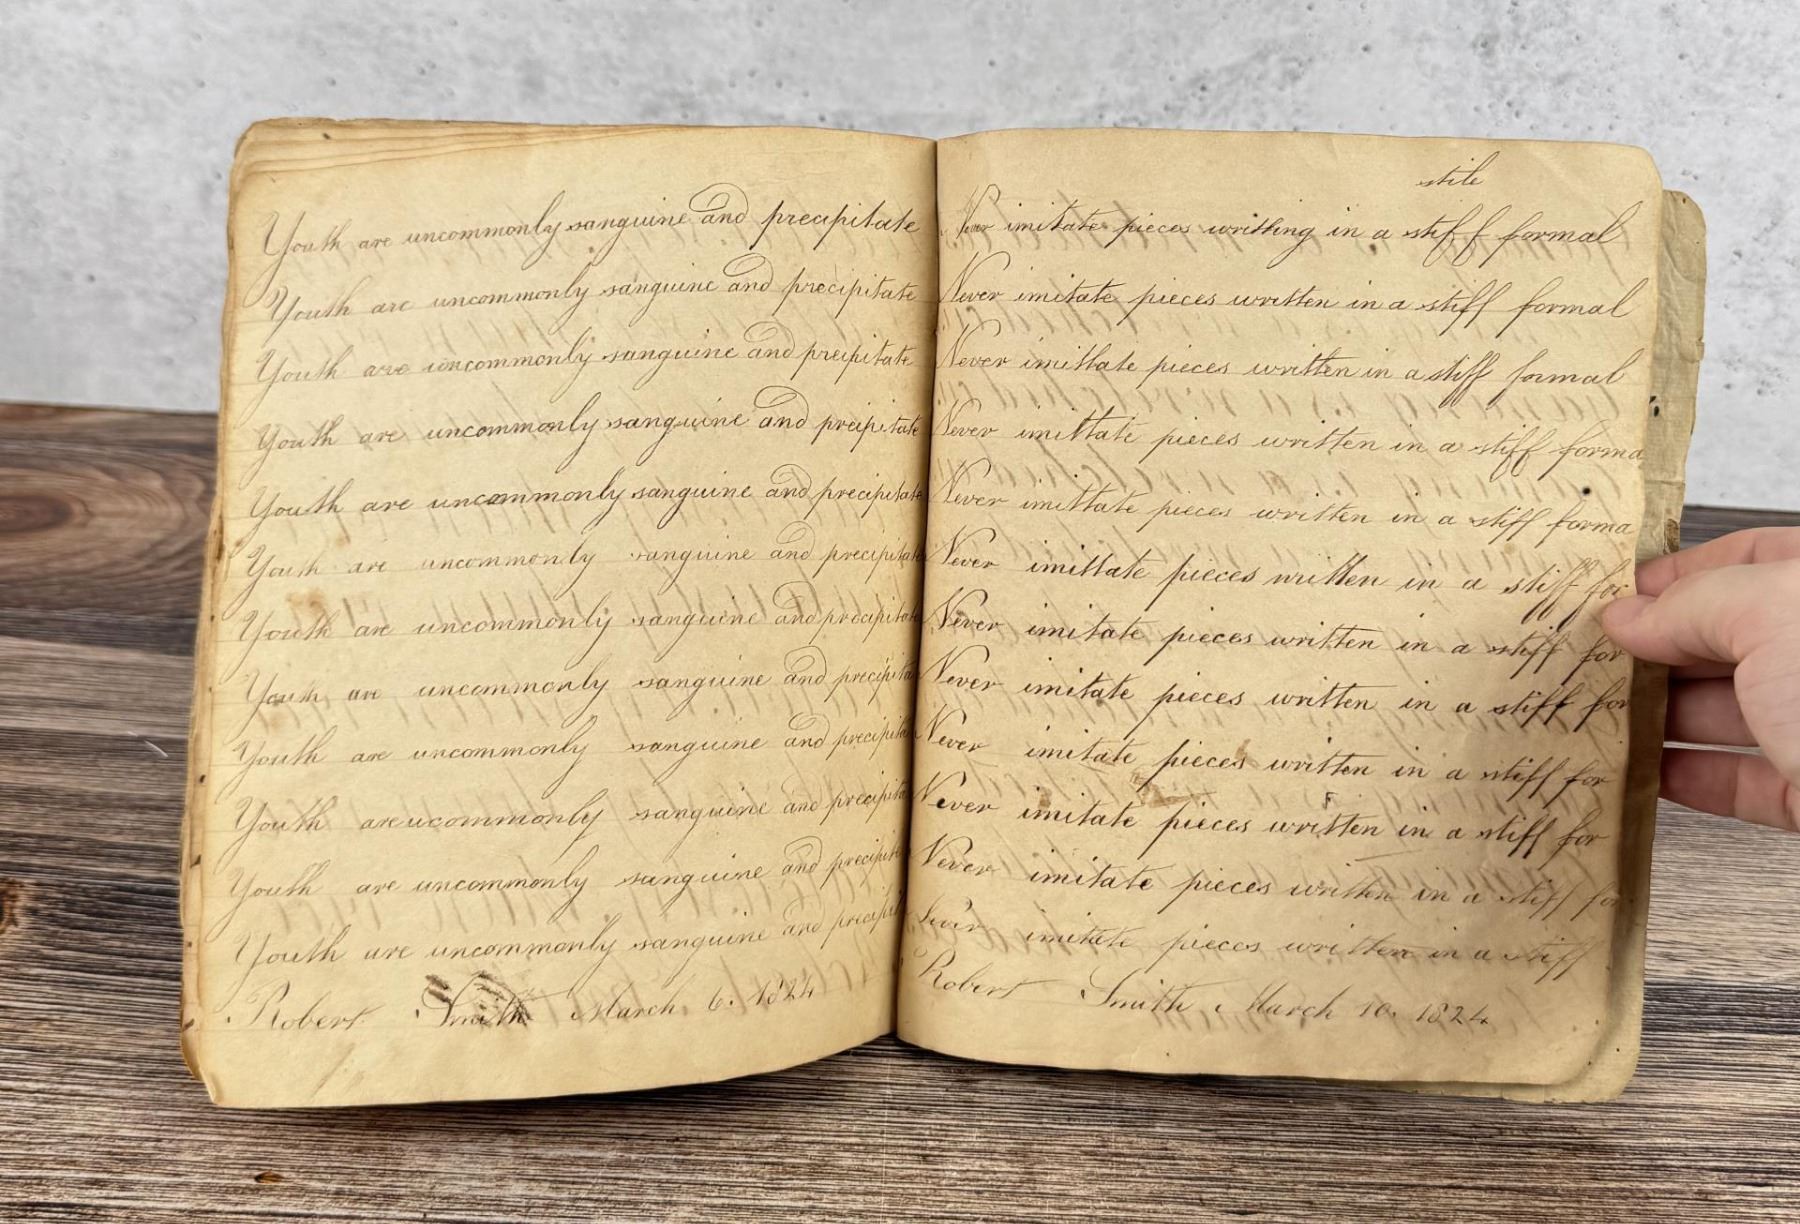 Youth are uncommonly sanguine and precipitate
Youth are uncommonly sanguine and precipitate
Youth are uncommonly sanguine and precipitate
Youth are uncommonly sanguine and precipitate
Youth are uncommonly sanguine and precipitate
Youth are uncommonly sanguine and precipitate
Youth are uncommonly sanguine and precipitate
Youth are uncommonly sanguine and precipita
Youth are uncommonly sanguine and precipita
Youth are ucommonly sanguine and precipita
Youth are uncommonly sanguine and precipit
Youth are uncommonly sanguine and precipit
Robert Smith March 6. 1824
stile
Never imitate pieces writting in a stiff formal
Never imitate pieces written in a stiff formal
Never imittate pieces written in a stiff formal
Never imittate pieces written in a stiff forma
Never imittate pieces written in a stiff forma
Never imittate pieces written in a stiff for
Never imitate pieces written in a stiff for
Never imitate pieces written in a stiff for
Never imitate pieces written in a stiff for
Never imitate pieces written in a stiff for
Never imitate pieces written in a stiff for
Never imitate pieces written in a stiff
Robert Smith March 10. 1824